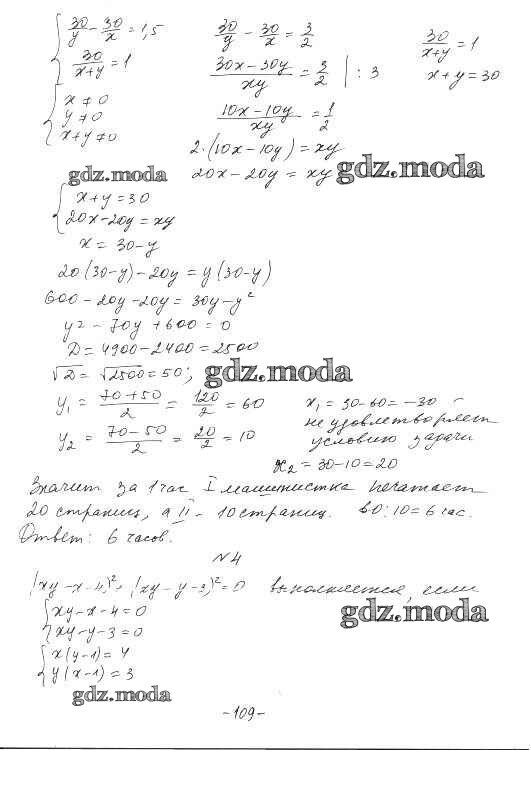 30/y - 30/x = 1,5
30/(x+y) = 1
x ≠ 0
y ≠ 0
x+y ≠ 0
30/y - 30/x = 3/2
(30x - 30y)/xy = 3/2 | : 3
(10x - 10y)/xy = 1/2
2·(10x - 10y) = xy
20x - 20y = xy
30/(x+y) = 1
x + y = 30
gdz.moda
gdz.moda
x + y = 30
20x - 20y = xy
x = 30 - y
20(30 - y) - 20y = y(30 - y)
600 - 20y - 20y = 30y - y²
y² - 70y + 600 = 0
D = 4900 - 2400 = 2500
√D = √2500 = 50;
gdz.moda
y₁ = (70 + 50)/2 = 120/2 = 60
y₂ = (70 - 50)/2 = 20/2 = 10
x₁ = 30 - 60 = -30 -
не удовлетворяет
условию задачи
x₂ = 30 - 10 = 20
Значит за 1 час I машинистка печатает
20 страниц, а II - 10 страниц. 60:10 = 6 час.
Ответ: 6 часов.
№4
(xy - x - 4)² + (xy - y - 3)² = 0 выполняется, если
xy - x - 4 = 0
xy - y - 3 = 0
gdz.moda
x(y-1) = 4
y(x-1) = 3
gdz.moda
-109-